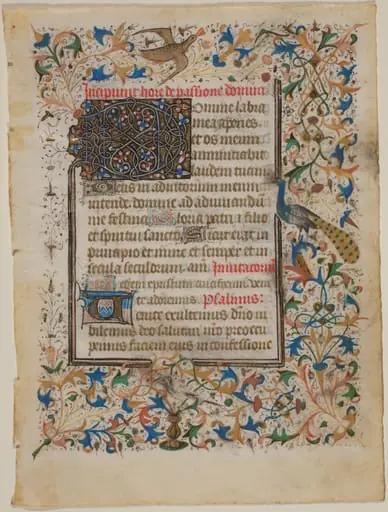 Incipiunt hore de passione domini
Domine labia
mea aperies.
et os meum
annuntiabit
laudem tuam
Deus in adiutorium meum
intende. domine ad adiuuandū
me festina. Gloria patri & filio
et spiritui sancto. Sicut erat in
principio et nunc et semper et in
secula seculorum. am̄. Inuitatoriū
xp̄m
te adoremus. Psalmus:
Uenite exultemus dn̄o iu
bilemus deo salutari nr̄o preoccu
pemus faciem eius in confessione